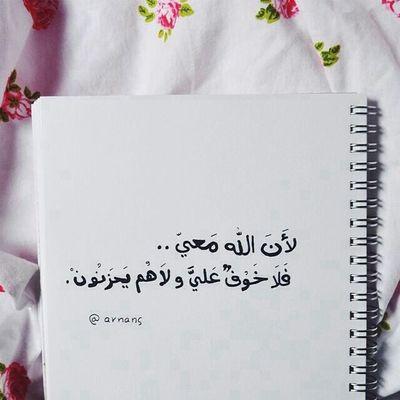 لأَنَ اللّه مَعيّ ..
فَلَا خَوْفٌ عَليَّ و لاَ هُم يَحزَنُونْ.
@ arnans